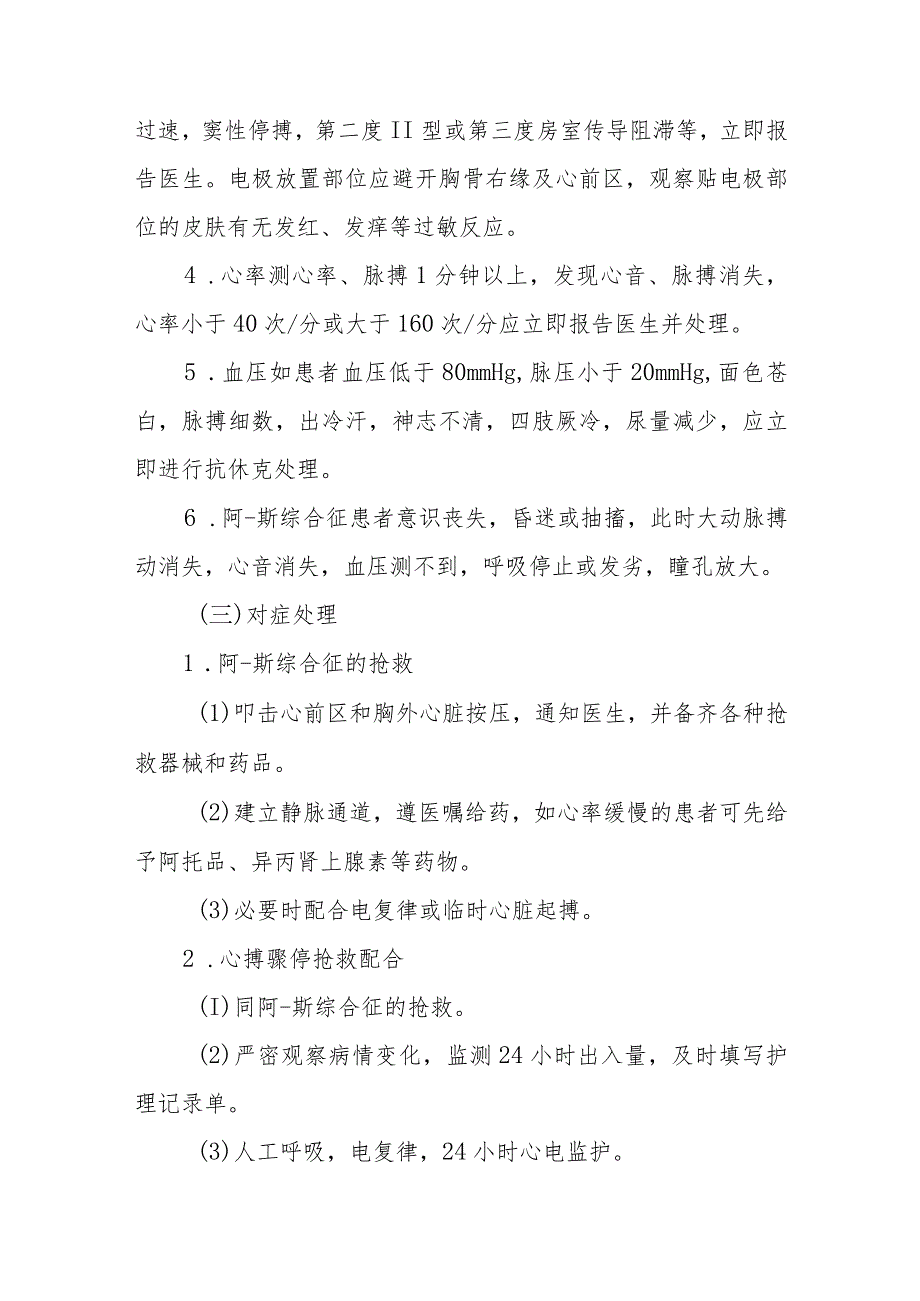 过速，窦性停搏，第二度II型或第三度房室传导阻滞等，立即报
告医生。电极放置部位应避开胸骨右缘及心前区，观察贴电极部
位的皮肤有无发红、发痒等过敏反应。
4.心率测心率、脉搏1分钟以上，发现心音、脉搏消失，
心率小于40次/分或大于160次/分应立即报告医生并处理。
5.血压如患者血压低于80mmHg,脉压小于20mmHg,面色苍
白，脉搏细数，出冷汗，神志不清，四肢厥冷，尿量减少，应立
即进行抗休克处理。
6.阿-斯综合征患者意识丧失，昏迷或抽搐，此时大动脉搏
动消失，心音消失，血压测不到，呼吸停止或发劣，瞳孔放大。
(三)对症处理
1.阿-斯综合征的抢救
(1)叩击心前区和胸外心脏按压，通知医生，并备齐各种抢
救器械和药品。
(2)建立静脉通道，遵医嘱给药，如心率缓慢的患者可先给
予阿托品、异丙肾上腺素等药物。
(3)必要时配合电复律或临时心脏起搏。
2.心搏骤停抢救配合
(I)同阿-斯综合征的抢救。
(2)严密观察病情变化，监测24小时出入量，及时填写护
理记录单。
(3)人工呼吸，电复律，24小时心电监护。